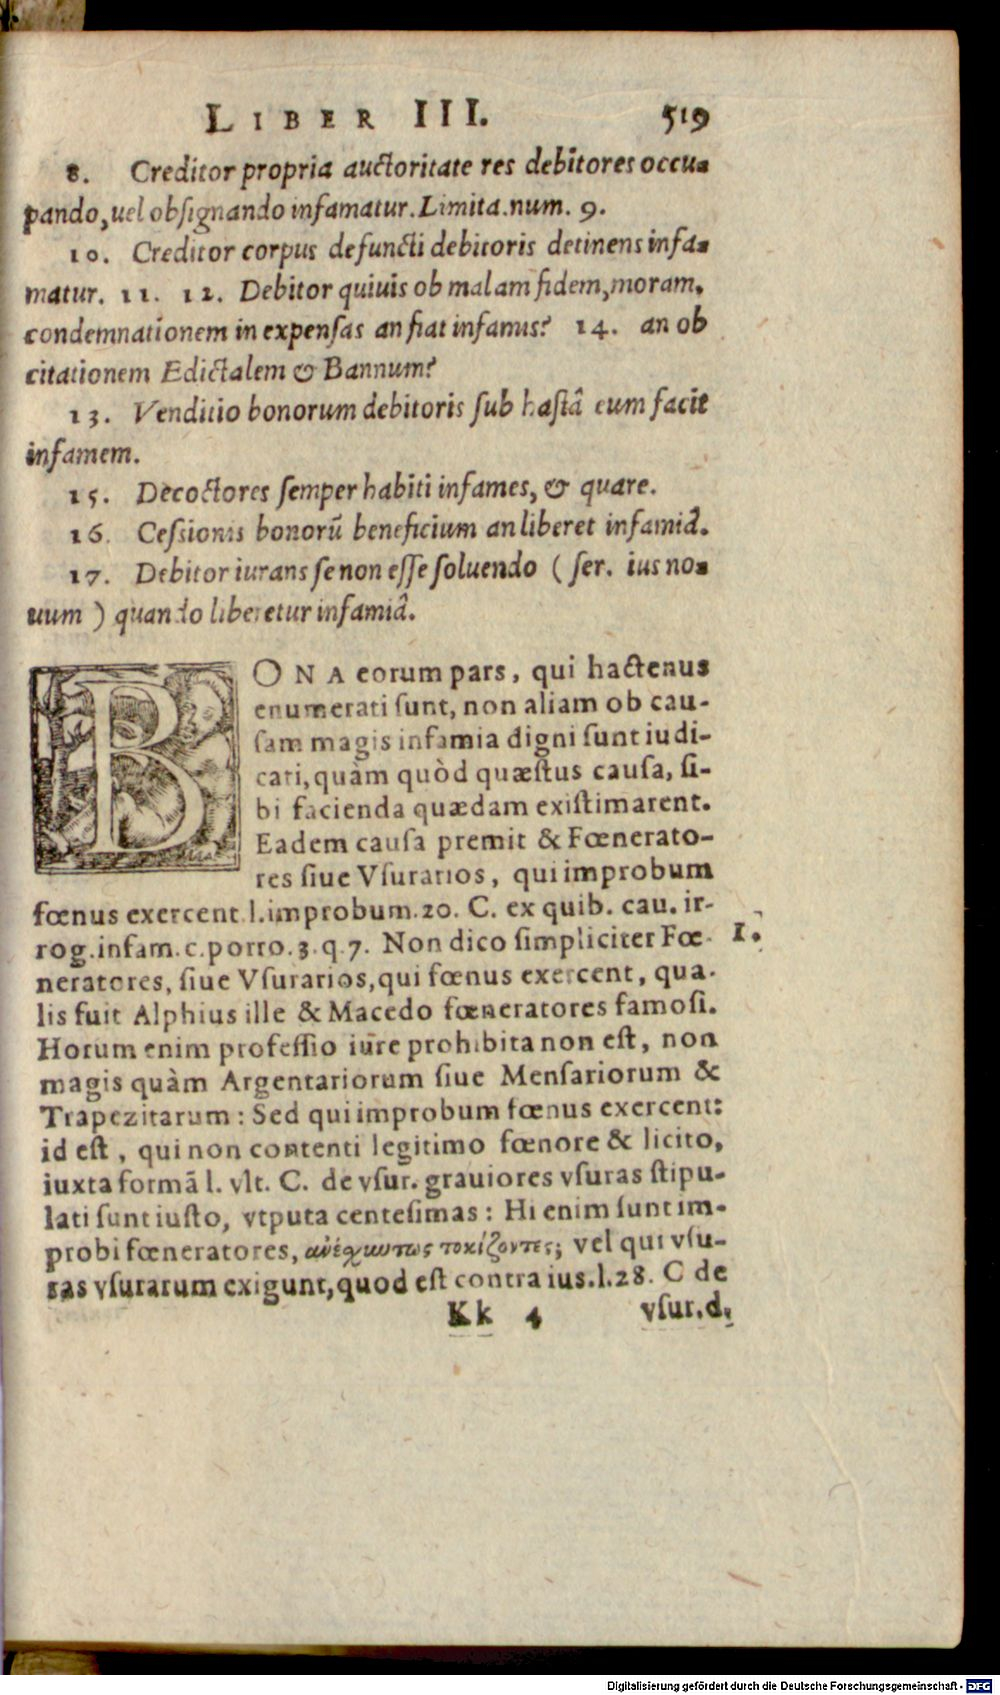 LIBER III. 519
8. Creditor propria auctoritate res debitores occu-
pando, uel obſignando infamatur. Limita. num. 9.
10. Creditor corpus defuncti debitoris detinens infa-
matur. 11. 12. Debitor quiuis ob malam fidem, moram,
condemnationem in expenſas an fiat infamis? 14. an ob
citationem Edictalem & Bannum?
13. Venditio bonorum debitoris ſub haſtâ eum facit
infamem.
15. Decoctores ſemper habiti infames, & quare.
16. Ceſsionis bonorū beneficium an liberet infamiâ.
17. Debitor iurans ſe non eſſe ſoluendo (ſer. ius no-
uum) quando liberetur infamiâ.
BONA eorum pars, qui hactenus
enumerati ſunt, non aliam ob cau-
ſam magis infamia digni ſunt iudi-
cati, quàm quòd quæſtus cauſa, ſi-
bi facienda quædam exiſtimarent.
Eadem cauſa premit & Fœnerato-
res ſiue Vſurarios, qui improbum
fœnus exercent l. improbum. 20. C. ex quib. cau. ir-
rog. infam. c. porro. 3. q. 7. Non dico ſimpliciter Fœ- 1.
neratores, ſiue Vſurarios, qui fœnus exercent, qua-
lis fuit Alphius ille & Macedo fœneratores famoſi.
Horum enim profeſſio iure prohibita non eſt, non
magis quàm Argentariorum ſiue Menſariorum &
Trapezitarum: Sed qui improbum fœnus exercent:
id eſt, qui non contenti legitimo fœnore & licito,
iuxta formã l. vlt. C. de vſur. grauiores vſuras ſtipu-
lati ſunt iuſto, vtputa centeſimas: Hi enim ſunt im-
probi fœneratores, τοκίζοντες; vel qui vſu-
ras vſurarum exigunt, quod eſt contra ius. l. 28. C de
Kk 4 vſur. d.
Digitalisierung gefördert durch die Deutsche Forschungsgemeinschaft - DFG